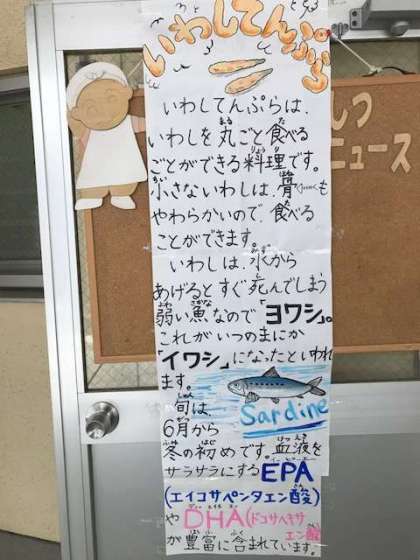 いわしてんぷら
いわしてんぷらは、
いわしを丸ごと食べる
ことができる料理です。
小さないわしは、骨も
やわらかいので、食べる
ことができます。
いわしは、水から
あげるとすぐ死んでしまう
弱い魚なので「ヨワシ」。
これがいつのまにか
「イワシ」になったといわれ
ます。
Sardine
旬は
6月から
冬の初めです。血液を
サラサラにするEPA
(エイコサペンタエン酸)
やDHA(ドコサヘキサ
エン酸
が豊富に含まれています。
しつ
ニュース